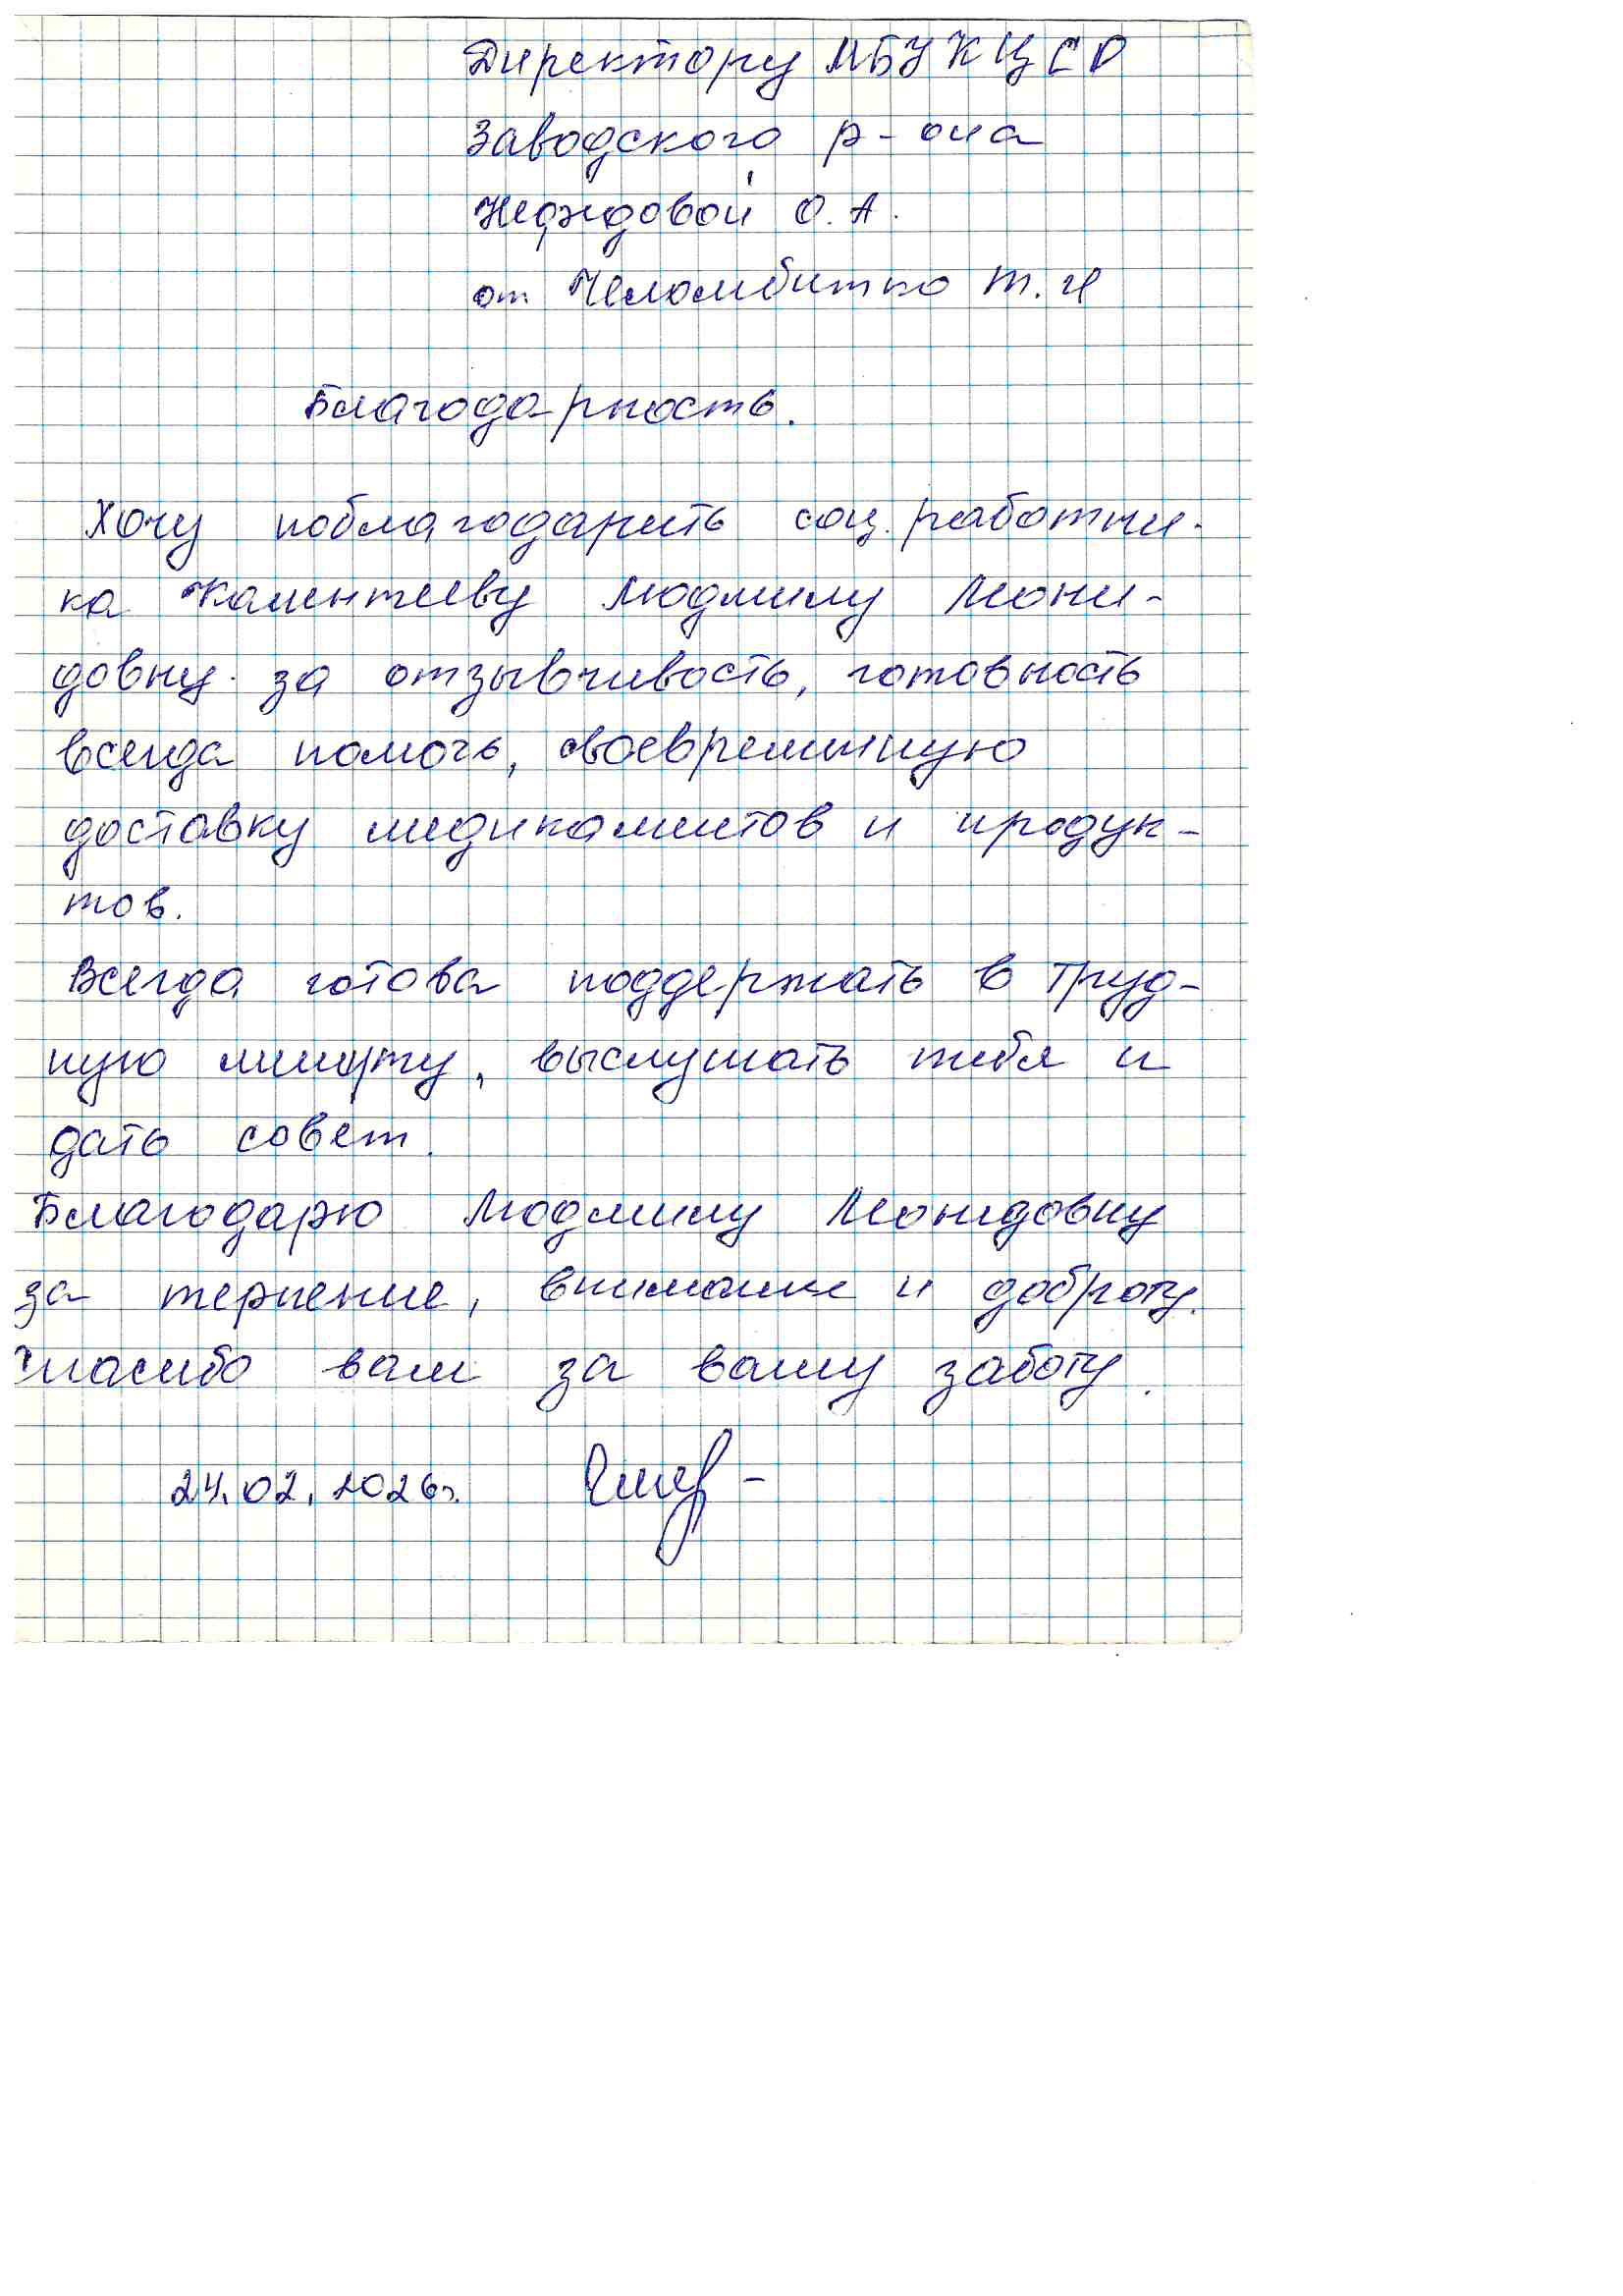 Директору МБУ КЦСО
Заводского р-она
О. А.
от Челомбитко Т. И
Благодарность.
Хочу поблагодарить соц. работни-
ка Калентьеву Людмилу Леони-
довну за отзывчивость, готовность
всегда помочь, своевременную
доставку медикаментов и продук-
тов.
Всегда готова поддержать в труд-
ную минуту, выслушать тебя и
дать совет.
Благодарю Людмилу Леонидовну
за терпение, внимание и доброту.
Спасибо вам за вашу заботу.
24.02.2026г.